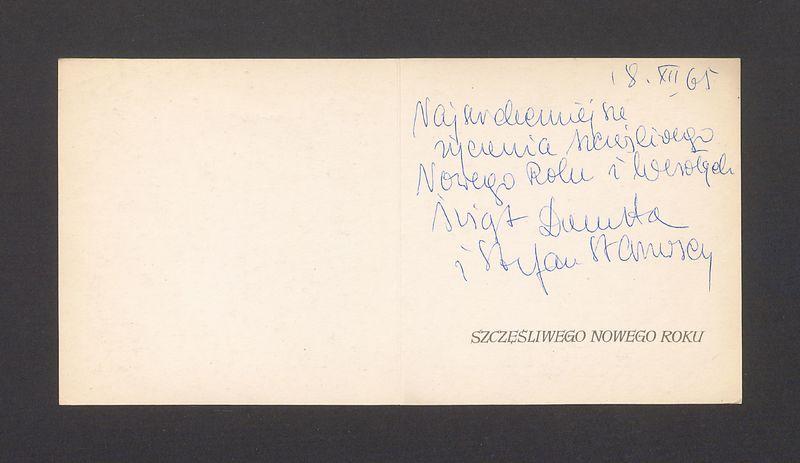 18. XII 65
Najserdeczniejsze
życzenia szczęśliwego
Nowego Roku i Wesołych
Świąt Danuta
i Stefan Stawiscy
SZCZĘŚLIWEGO NOWEGO ROKU